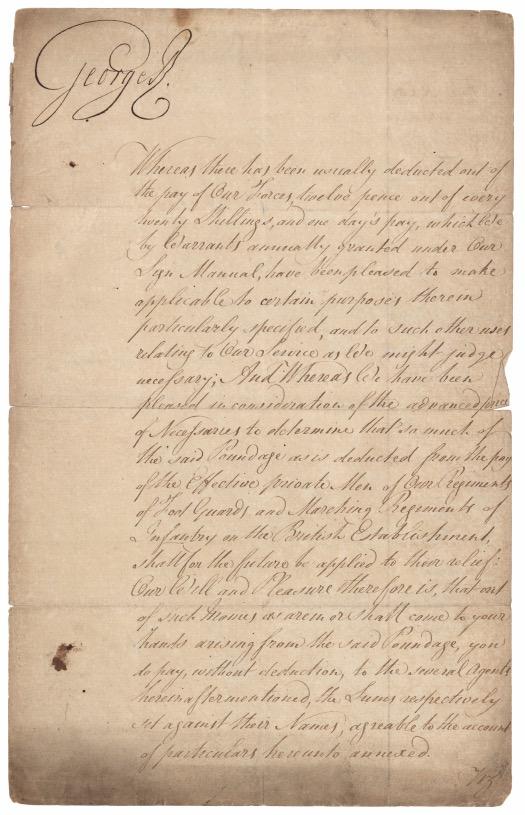 George R.
Whereas there has been usually deducted out of
the pay of Our Forces, twelve pence out of every
twenty Shillings, and one day's pay, which We
by Warrants annually granted under Our
Sign Manual, have been pleased to make
applicable to certain purposes therein
particularly specified, and to such other uses
relating to Our Service as We might judge
necessary; And Whereas We have been
pleased in consideration of the advanced price
of Necessaries to determine that so much of
the said Poundage as is deducted from the pay
of the Effective private Men of Our Regiments
of Foot Guards and Marching Regiments of
Infantry on the British Establishment,
shall for the future be applied to their relief:
Our Will and Pleasure therefore is, that out
of such Monies as are in or shall come to your
hands arising from the said Poundage, you
do pay, without deduction, to the several Agents
hereinafter mentioned, the Sums respectively
set against their Names, agreable to the account
of particulars hereunto annexed.